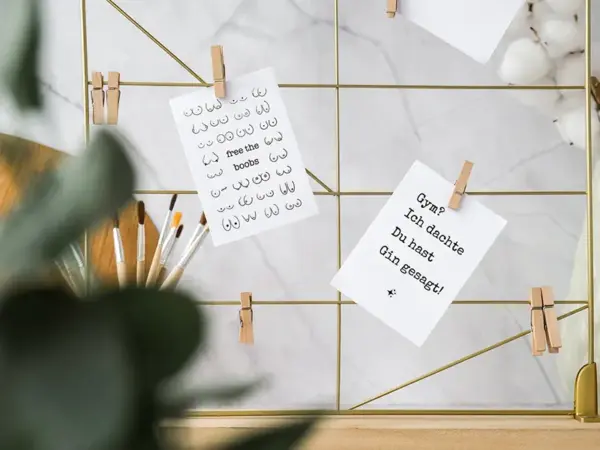 free the
boobs
Gym?
Ich dachte
Du hast
Gin gesagt!